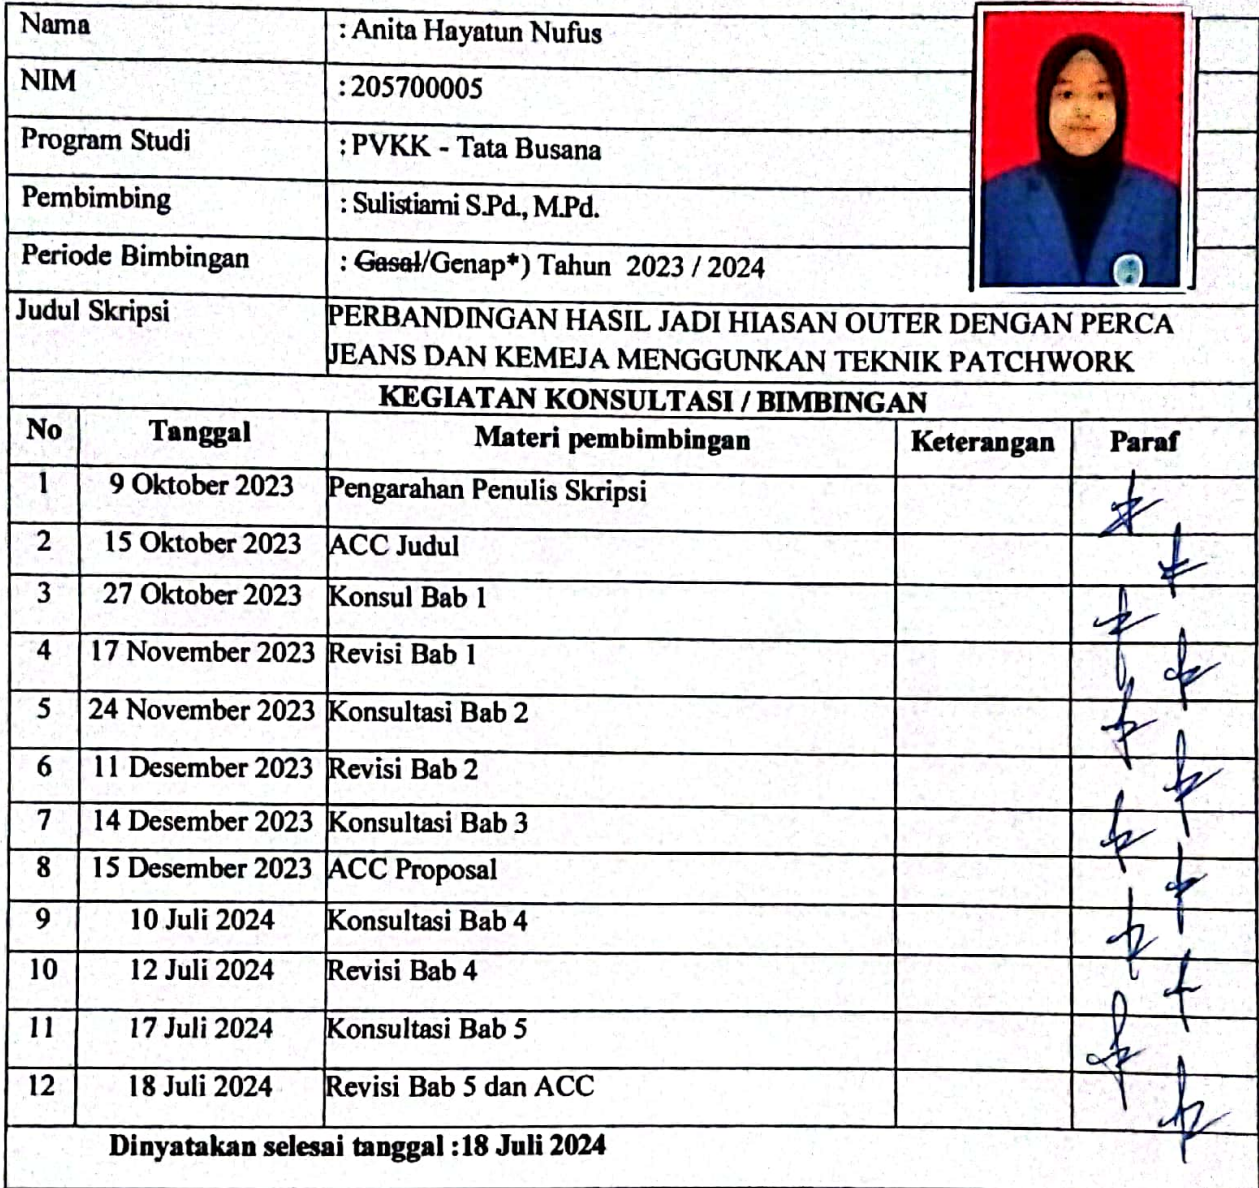 Nama : Anita Hayatun Nufus
NIM : 205700005
Program Studi : PVKK - Tata Busana
Pembimbing : Sulistiami S.Pd., M.Pd.
Periode Bimbingan : Gasal/Genap*) Tahun 2023 / 2024
Judul Skripsi PERBANDINGAN HASIL JADI HIASAN OUTER DENGAN PERCA
JEANS DAN KEMEJA MENGGUNKAN TEKNIK PATCHWORK
KEGIATAN KONSULTASI / BIMBINGAN
No Tanggal Materi pembimbingan Keterangan Paraf
1 9 Oktober 2023 Pengarahan Penulis Skripsi
2 15 Oktober 2023 ACC Judul
3 27 Oktober 2023 Konsul Bab 1
4 17 November 2023 Revisi Bab 1
5 24 November 2023 Konsultasi Bab 2
6 11 Desember 2023 Revisi Bab 2
7 14 Desember 2023 Konsultasi Bab 3
8 15 Desember 2023 ACC Proposal
9 10 Juli 2024 Konsultasi Bab 4
10 12 Juli 2024 Revisi Bab 4
11 17 Juli 2024 Konsultasi Bab 5
12 18 Juli 2024 Revisi Bab 5 dan ACC
Dinyatakan selesai tanggal :18 Juli 2024